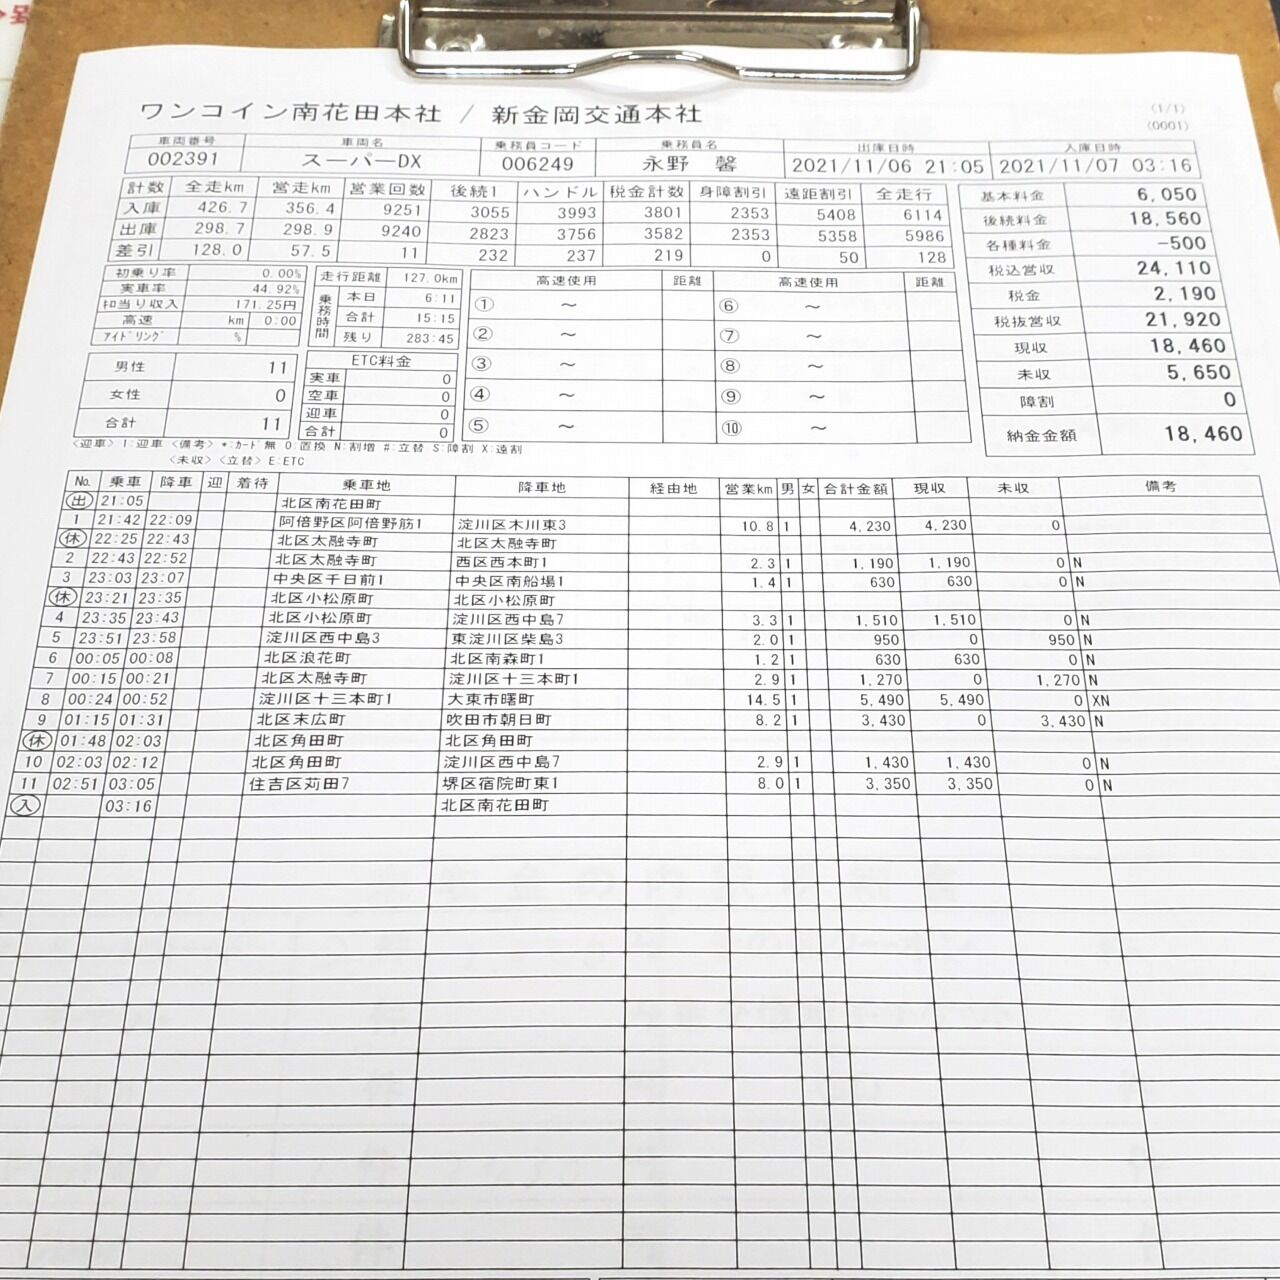 ワンコイン南花田本社 / 新金岡交通本社
(1/1)
(0001)
車両番号 車両名 乗務員コード 乗務員名 出庫日時 入庫日時
002391 スーパーDX 006249 永野 馨 2021/11/06 21:05 2021/11/07 03:16
計数 全走km 営走km 営業回数 後続1 ハンドル 税金計数 身障割引 遠距割引 全走行
入庫 426.7 356.4 9251 3055 3993 3801 2353 5408 6114
出庫 298.7 298.9 9240 2823 3756 3582 2353 5358 5986
差引 128.0 57.5 11 232 237 219 0 50 128
基本料金 6,050
後続料金 18,560
各種料金 -500
税込営収 24,110
税金 2,190
税抜営収 21,920
現収 18,460
未収 5,650
障割 0
納金金額 18,460
初乗り率 0.00%
実車率 44.92%
キロ当り収入 171.25円
高速 km 0:00
アイドリング %
走行距離 127.0km
乗務時間
本日 6:11
合計 15:15
残り 283:45
高速使用 距離 高速使用 距離
① ~ ⑥ ~
② ~ ⑦ ~
③ ~ ⑧ ~
④ ~ ⑨ ~
⑤ ~ ⑩ ~
男性 11
女性 0
合計 11
ETC料金
実車 0
空車 0
迎車 0
合計 0
<迎車> I:迎車 <備考> *:カード無 O:置換 N:割増 #:立替 S:障割 X:遠割
<未収> <立替> E:ETC
No. 乗車 降車 迎 着待 乗車地 降車地 経由地 営業km 男 女 合計金額 現収 未収 備考
出 21:05 北区南花田町
1 21:42 22:09 阿倍野区阿倍野筋1 淀川区木川東3 10.8 1 4,230 4,230 0
休 22:25 22:43 北区太融寺町 北区太融寺町
2 22:43 22:52 北区太融寺町 西区西本町1 2.3 1 1,190 1,190 0 N
3 23:03 23:07 中央区千日前1 中央区南船場1 1.4 1 630 630 0 N
休 23:21 23:35 北区小松原町 北区小松原町
4 23:35 23:43 北区小松原町 淀川区西中島7 3.3 1 1,510 1,510 0 N
5 23:51 23:58 淀川区西中島3 東淀川区柴島3 2.0 1 950 0 950 N
6 00:05 00:08 北区浪花町 北区南森町1 1.2 1 630 630 0 N
7 00:15 00:21 北区太融寺町 淀川区十三本町1 2.9 1 1,270 0 1,270 N
8 00:24 00:52 淀川区十三本町1 大東市曙町 14.5 1 5,490 5,490 0 XN
9 01:15 01:31 北区末広町 吹田市朝日町 8.2 1 3,430 0 3,430 N
休 01:48 02:03 北区角田町 北区角田町
10 02:03 02:12 北区角田町 淀川区西中島7 2.9 1 1,430 1,430 0 N
11 02:51 03:05 住吉区苅田7 堺区宿院町東1 8.0 1 3,350 3,350 0 N
入 03:16 北区南花田町